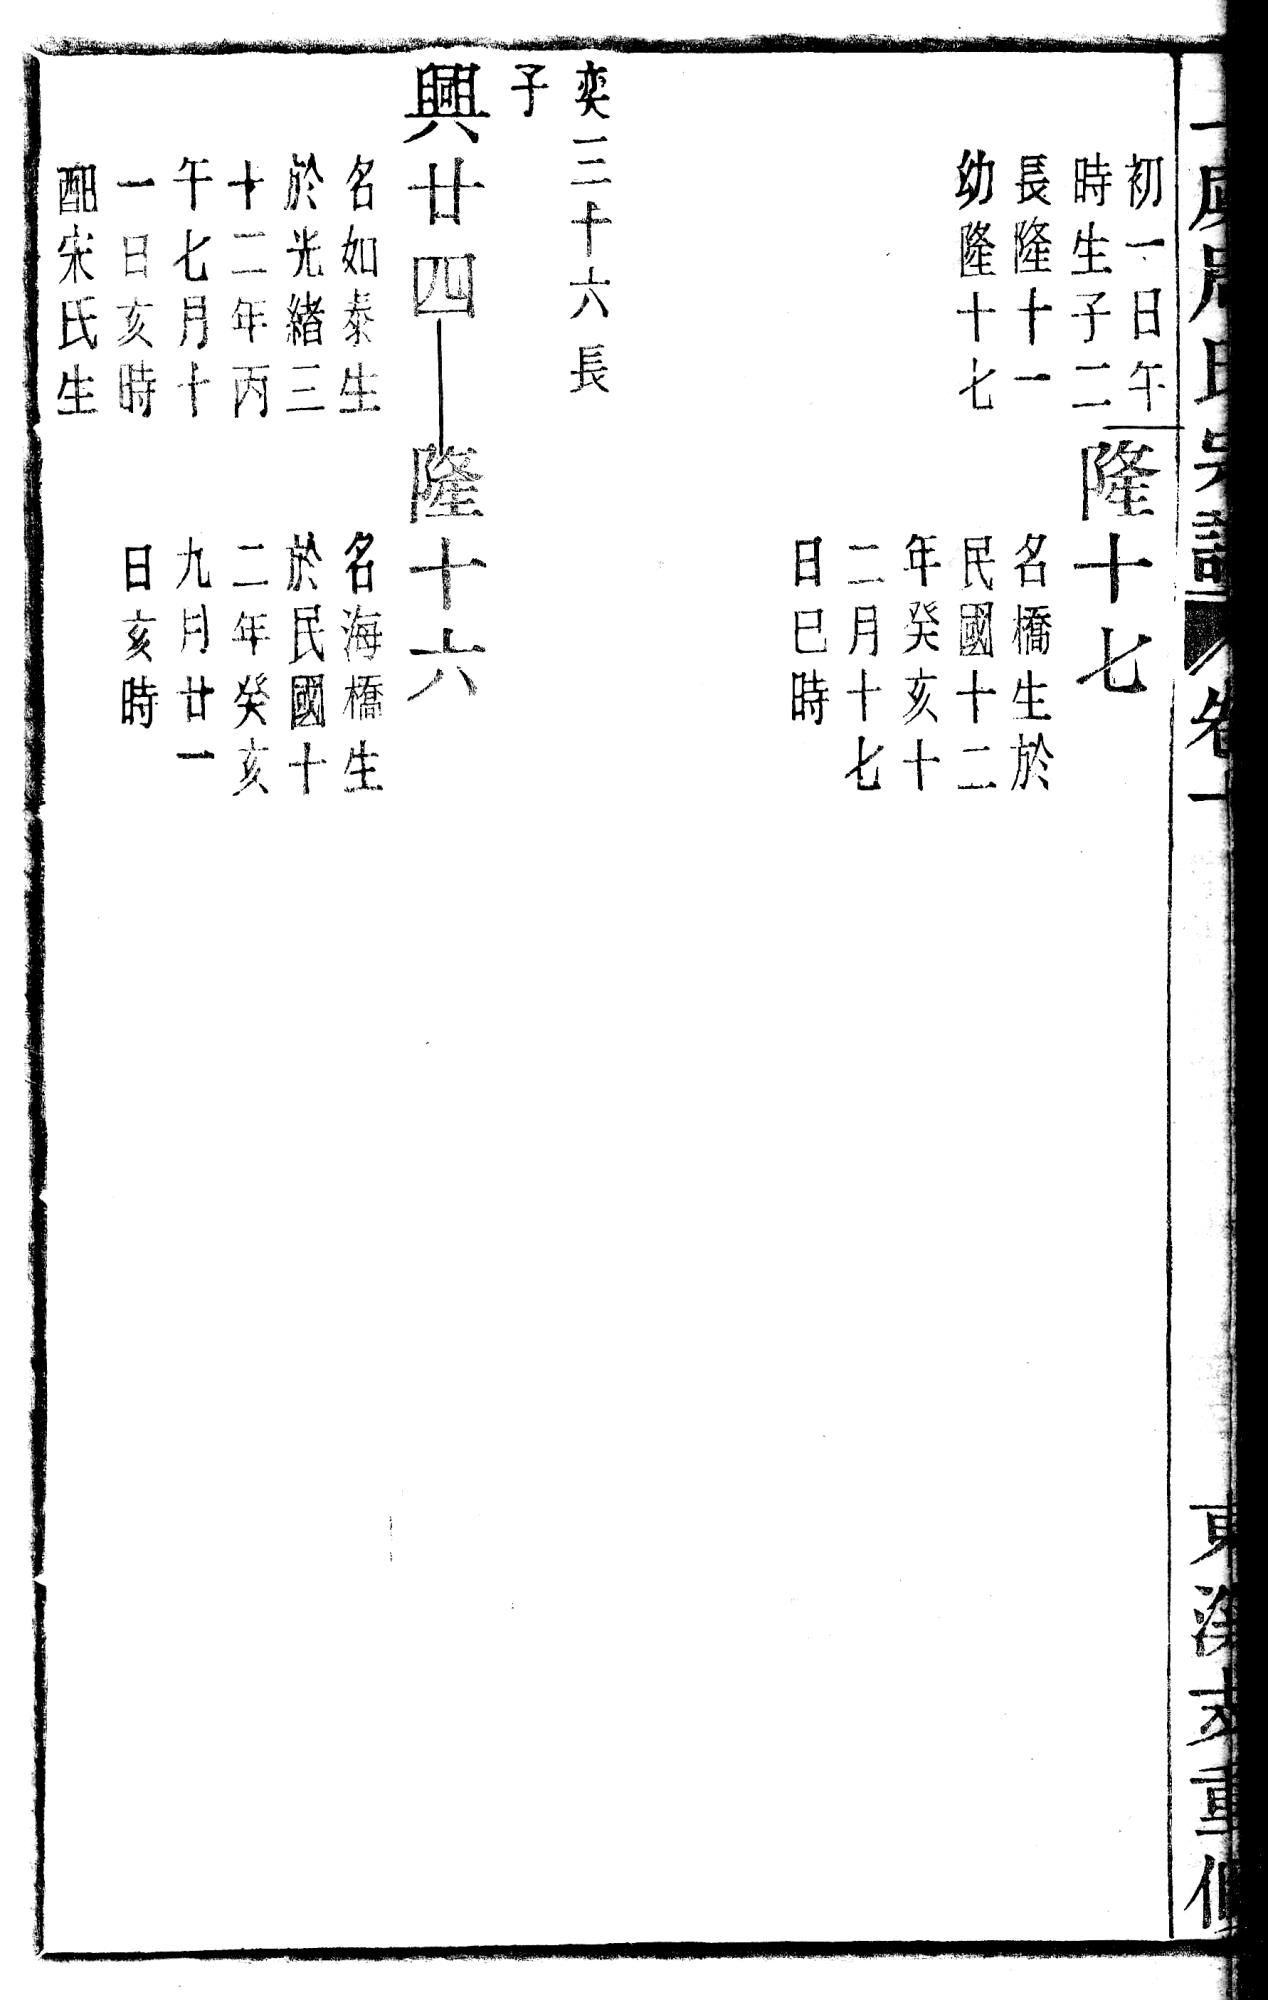 初一日午
時生子二
長隆十一
幼隆十七
隆十七
名橋生於
民國十二
年癸亥十
二月十七
日巳時
奕三十六長
子
興廿四
名如泰生
於光緒三
十二年丙
午七月十
一日亥時
配宋氏生
隆十六
名海橋生
於民國十
二年癸亥
九月廿一
日亥時